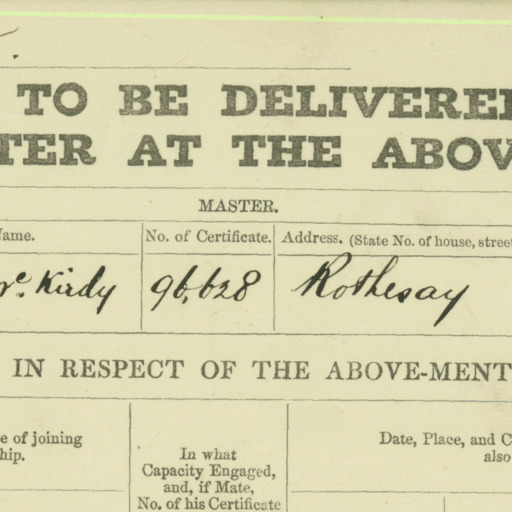 TO BE DELIVERE
TER AT THE ABOV
MASTER.
Name. No. of Certificate. Address. (State No. of house, street
Mc. Kirdy 96,628 Rothesay
IN RESPECT OF THE ABOVE-MENT
e of joining
hip.
In what
Capacity Engaged,
and, if Mate,
No. of his Certificate
Date, Place, and C
also